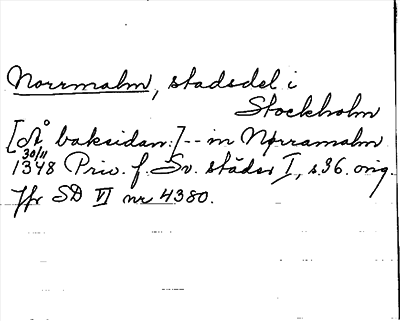 Norrmalm, stadsdel i
Stockholm
[Å baksidan:] -- in Norramalm
30/11
1348 Priv. f. Sv. städer I, s. 36. orig.
Jfr SD VI nr 4380.